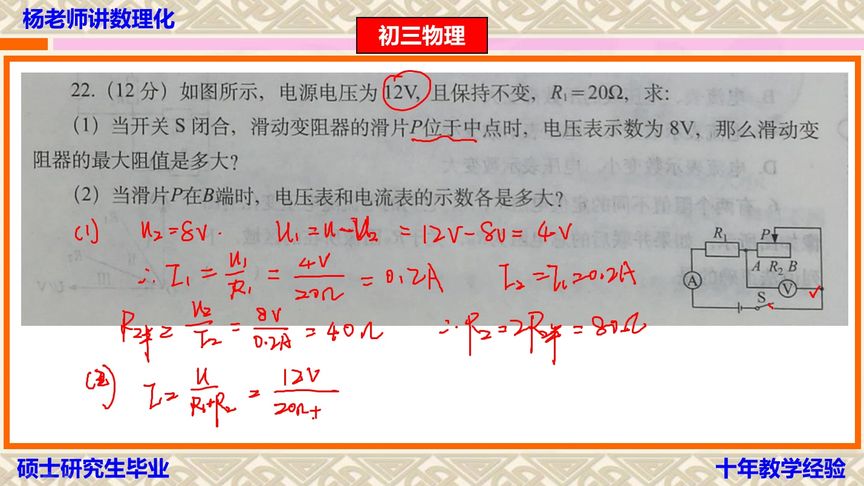 杨老师讲数理化
初三物理
22.（12 分）如图所示，电源电压为 12V，且保持不变，R₁＝20Ω，求：
（1）当开关 S 闭合，滑动变阻器的滑片P位于中点时，电压表示数为 8V，那么滑动变
阻器的最大阻值是多大？
（2）当滑片P在B端时，电压表和电流表的示数各是多大？
(1) U₂=8V. U₁=U-U₂ =12V-8V=4V
∴I₁=U₁/R₁=4V/20Ω=0.2A I₂=I₁=0.2A
R₂半=U₂/I₂=8V/0.2A=40Ω ∴R₂=2R₂半=80Ω
(2) I=U/R₁+R₂=12V/20Ω+
R₁ P
A R₂ B
A V
S
硕士研究生毕业
十年教学经验